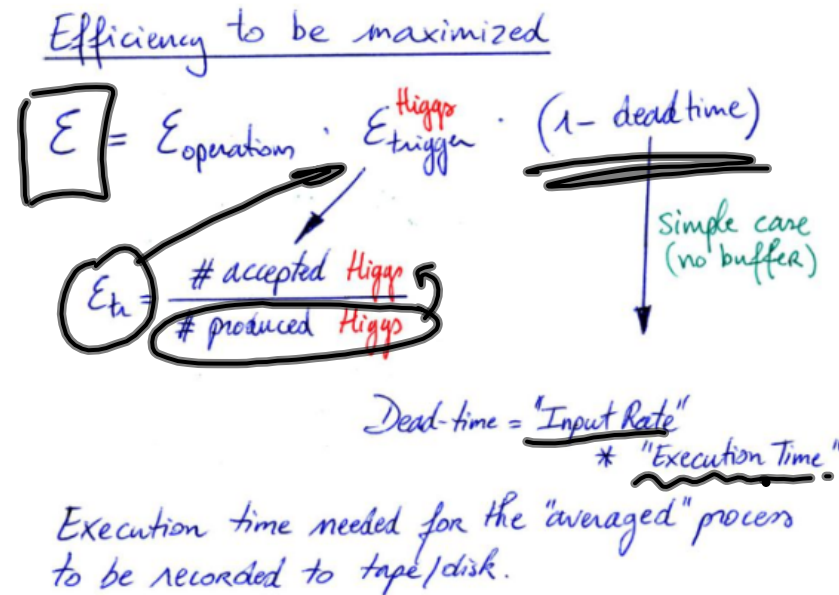 Efficiency to be maximized
ε = ε operations · ε trigger Higgs · (1 - dead time)
simple case
(no buffer)
ε tr = # accepted Higgs
# produced Higgs
Dead-time = "Input Rate"
* "Execution Time"
Execution time needed for the "averaged" process
to be recorded to tape/disk.